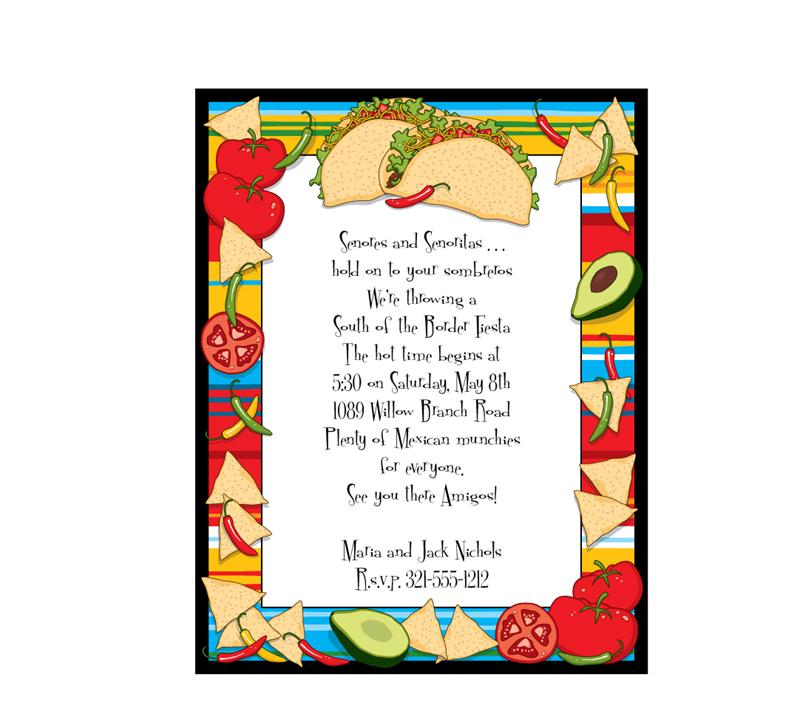 Senores and Senoritas . . .
hold on to your sombreros
We're throwing a
South of the Border Fiesta
The hot time begins at
5:30 on Saturday, May 8th
1089 Willow Branch Road
Plenty of Mexican munchies
for everyone.
See you there Amigos!
Maria and Jack Nichols
R.s.v.p. 321-555-1212